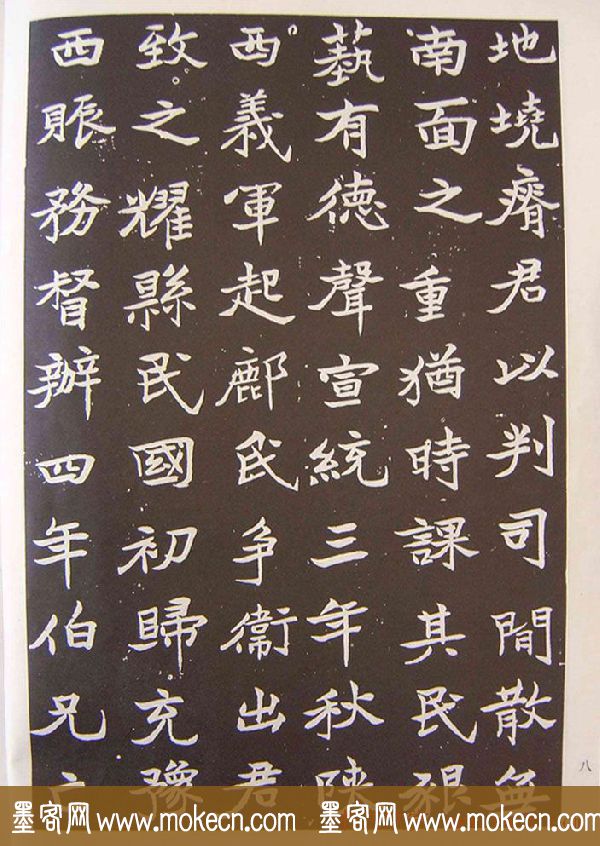 地墝瘠君以判司閒散無
南面之重猶時課其民墾
藝有德聲宣統三年秋陝
西義軍起鄜民爭衛出君
致之耀縣民國初歸充豫
西賑務督辦四年伯兄
八
墨客网 www.mokecn.com 墨客网 www.mokecn.com